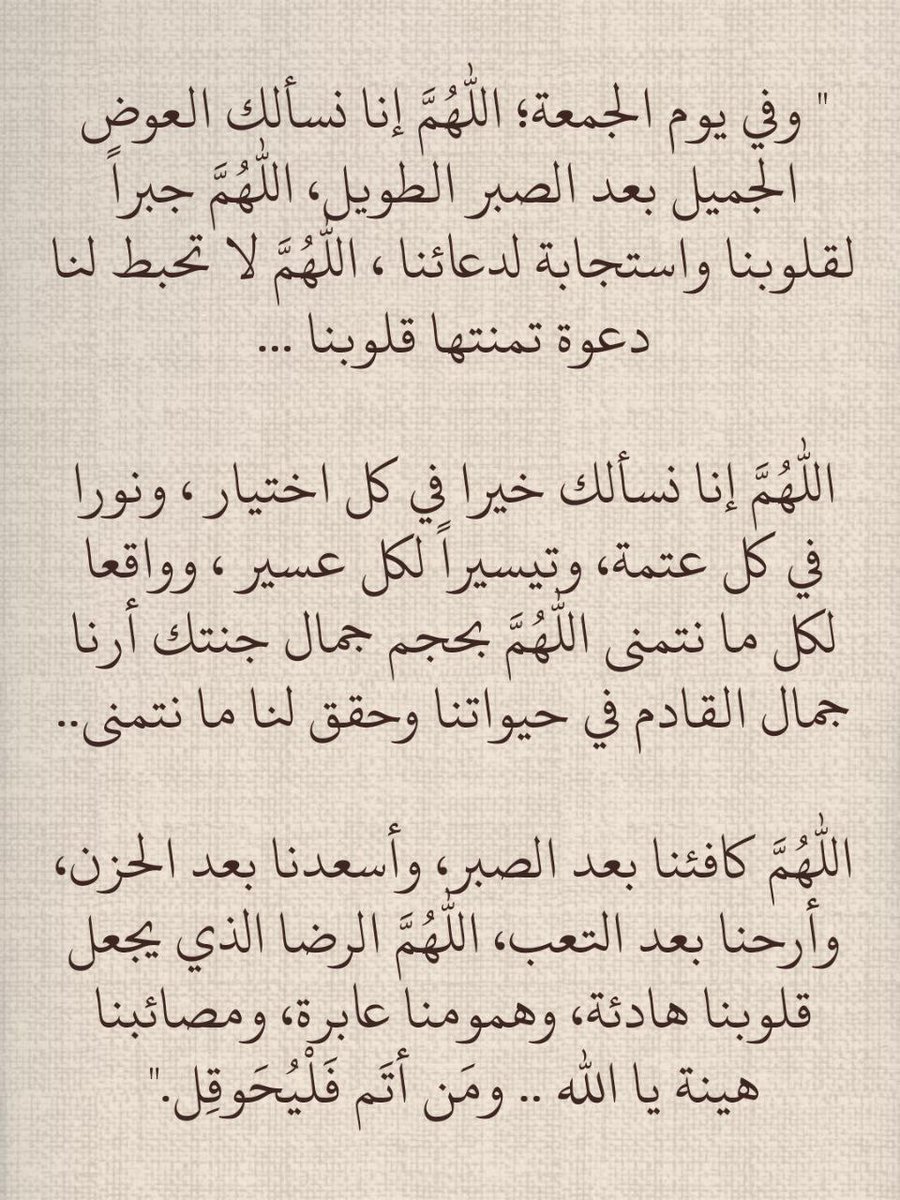 " وفي يوم الجمعة؛ اللّٰهُمَّ إنا نسألك العوض
الجميل بعد الصبر الطويل، اللّٰهُمَّ جبراً
لقلوبنا واستجابة لدعائنا ، اللّٰهُمَّ لا تحبط لنا
دعوة تمنتها قلوبنا ...
اللّٰهُمَّ إنا نسألك خيرا في كل اختيار ، ونورا
في كل عتمة، وتيسيراً لكل عسير ، وواقعا
لكل ما نتمنى اللّٰهُمَّ بحجم جمال جنتك أرنا
جمال القادم في حيواتنا وحقق لنا ما نتمنى..
اللّٰهُمَّ كافئنا بعد الصبر، وأسعدنا بعد الحزن،
وأرحنا بعد التعب، اللّٰهُمَّ الرضا الذي يجعل
قلوبنا هادئة، وهمومنا عابرة، ومصائبنا
هينة يا الله .. ومَن أتَم فَلْيُحَوقِل."